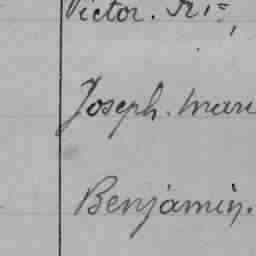 Victor.
Joseph. Mari
Benjamin.